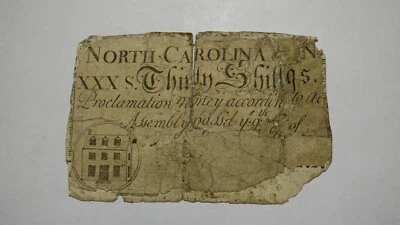 NORTH CAROLINA N
XXX S. Thirty Shillgs.
Proclamation Money according to Ac
Assembly pass'd yᵉ 9th of